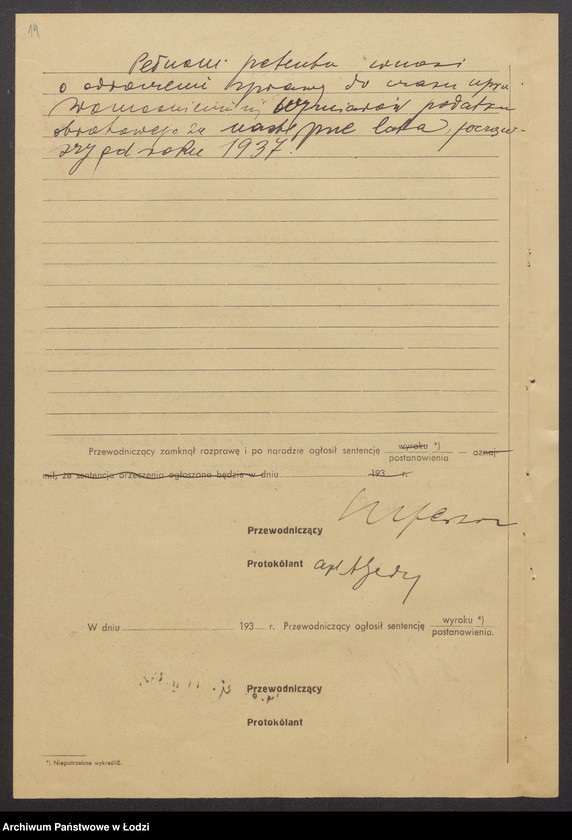 19
Pełnom. petenta wnosi
o odroczenie sprawy do czasu upra-
womocnienia się wymiarów podatku
obrotowego za następne lata, począw-
szy od roku 1937.
Przewodniczący zamknął rozprawę i po naradzie ogłosił sentencję wyroku *) postanowienia — oznaj-
mił, że sentencja orzeczenia ogłoszona będzie w dniu 193 r.
Przewodniczący
Protokólant
W dniu 193 r. Przewodniczący ogłosił sentencję wyroku *) postanowienia.
Przewodniczący
Protokólant
*) Niepotrzebne wykreślić.
Archiwum Państwowe w Łodzi